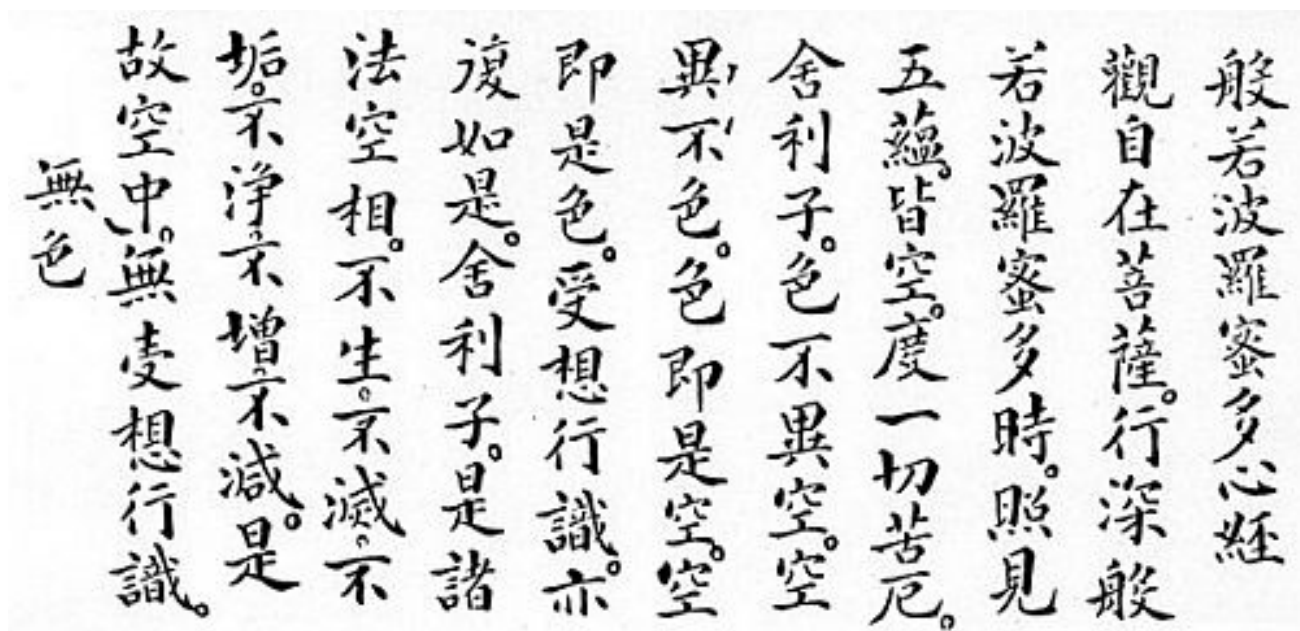 般若波羅蜜多心経
觀自在菩薩。行深般
若波羅蜜多時。照見
五蘊。皆空。度一切苦厄。
舍利子。色不異空。空
異不色。色即是空。空
即是色。受想行識。亦
復如是。舍利子。是諸
法空相。不生。不滅。不
垢。不浄。不増。不減。是
故空中。無受想行識。
無色